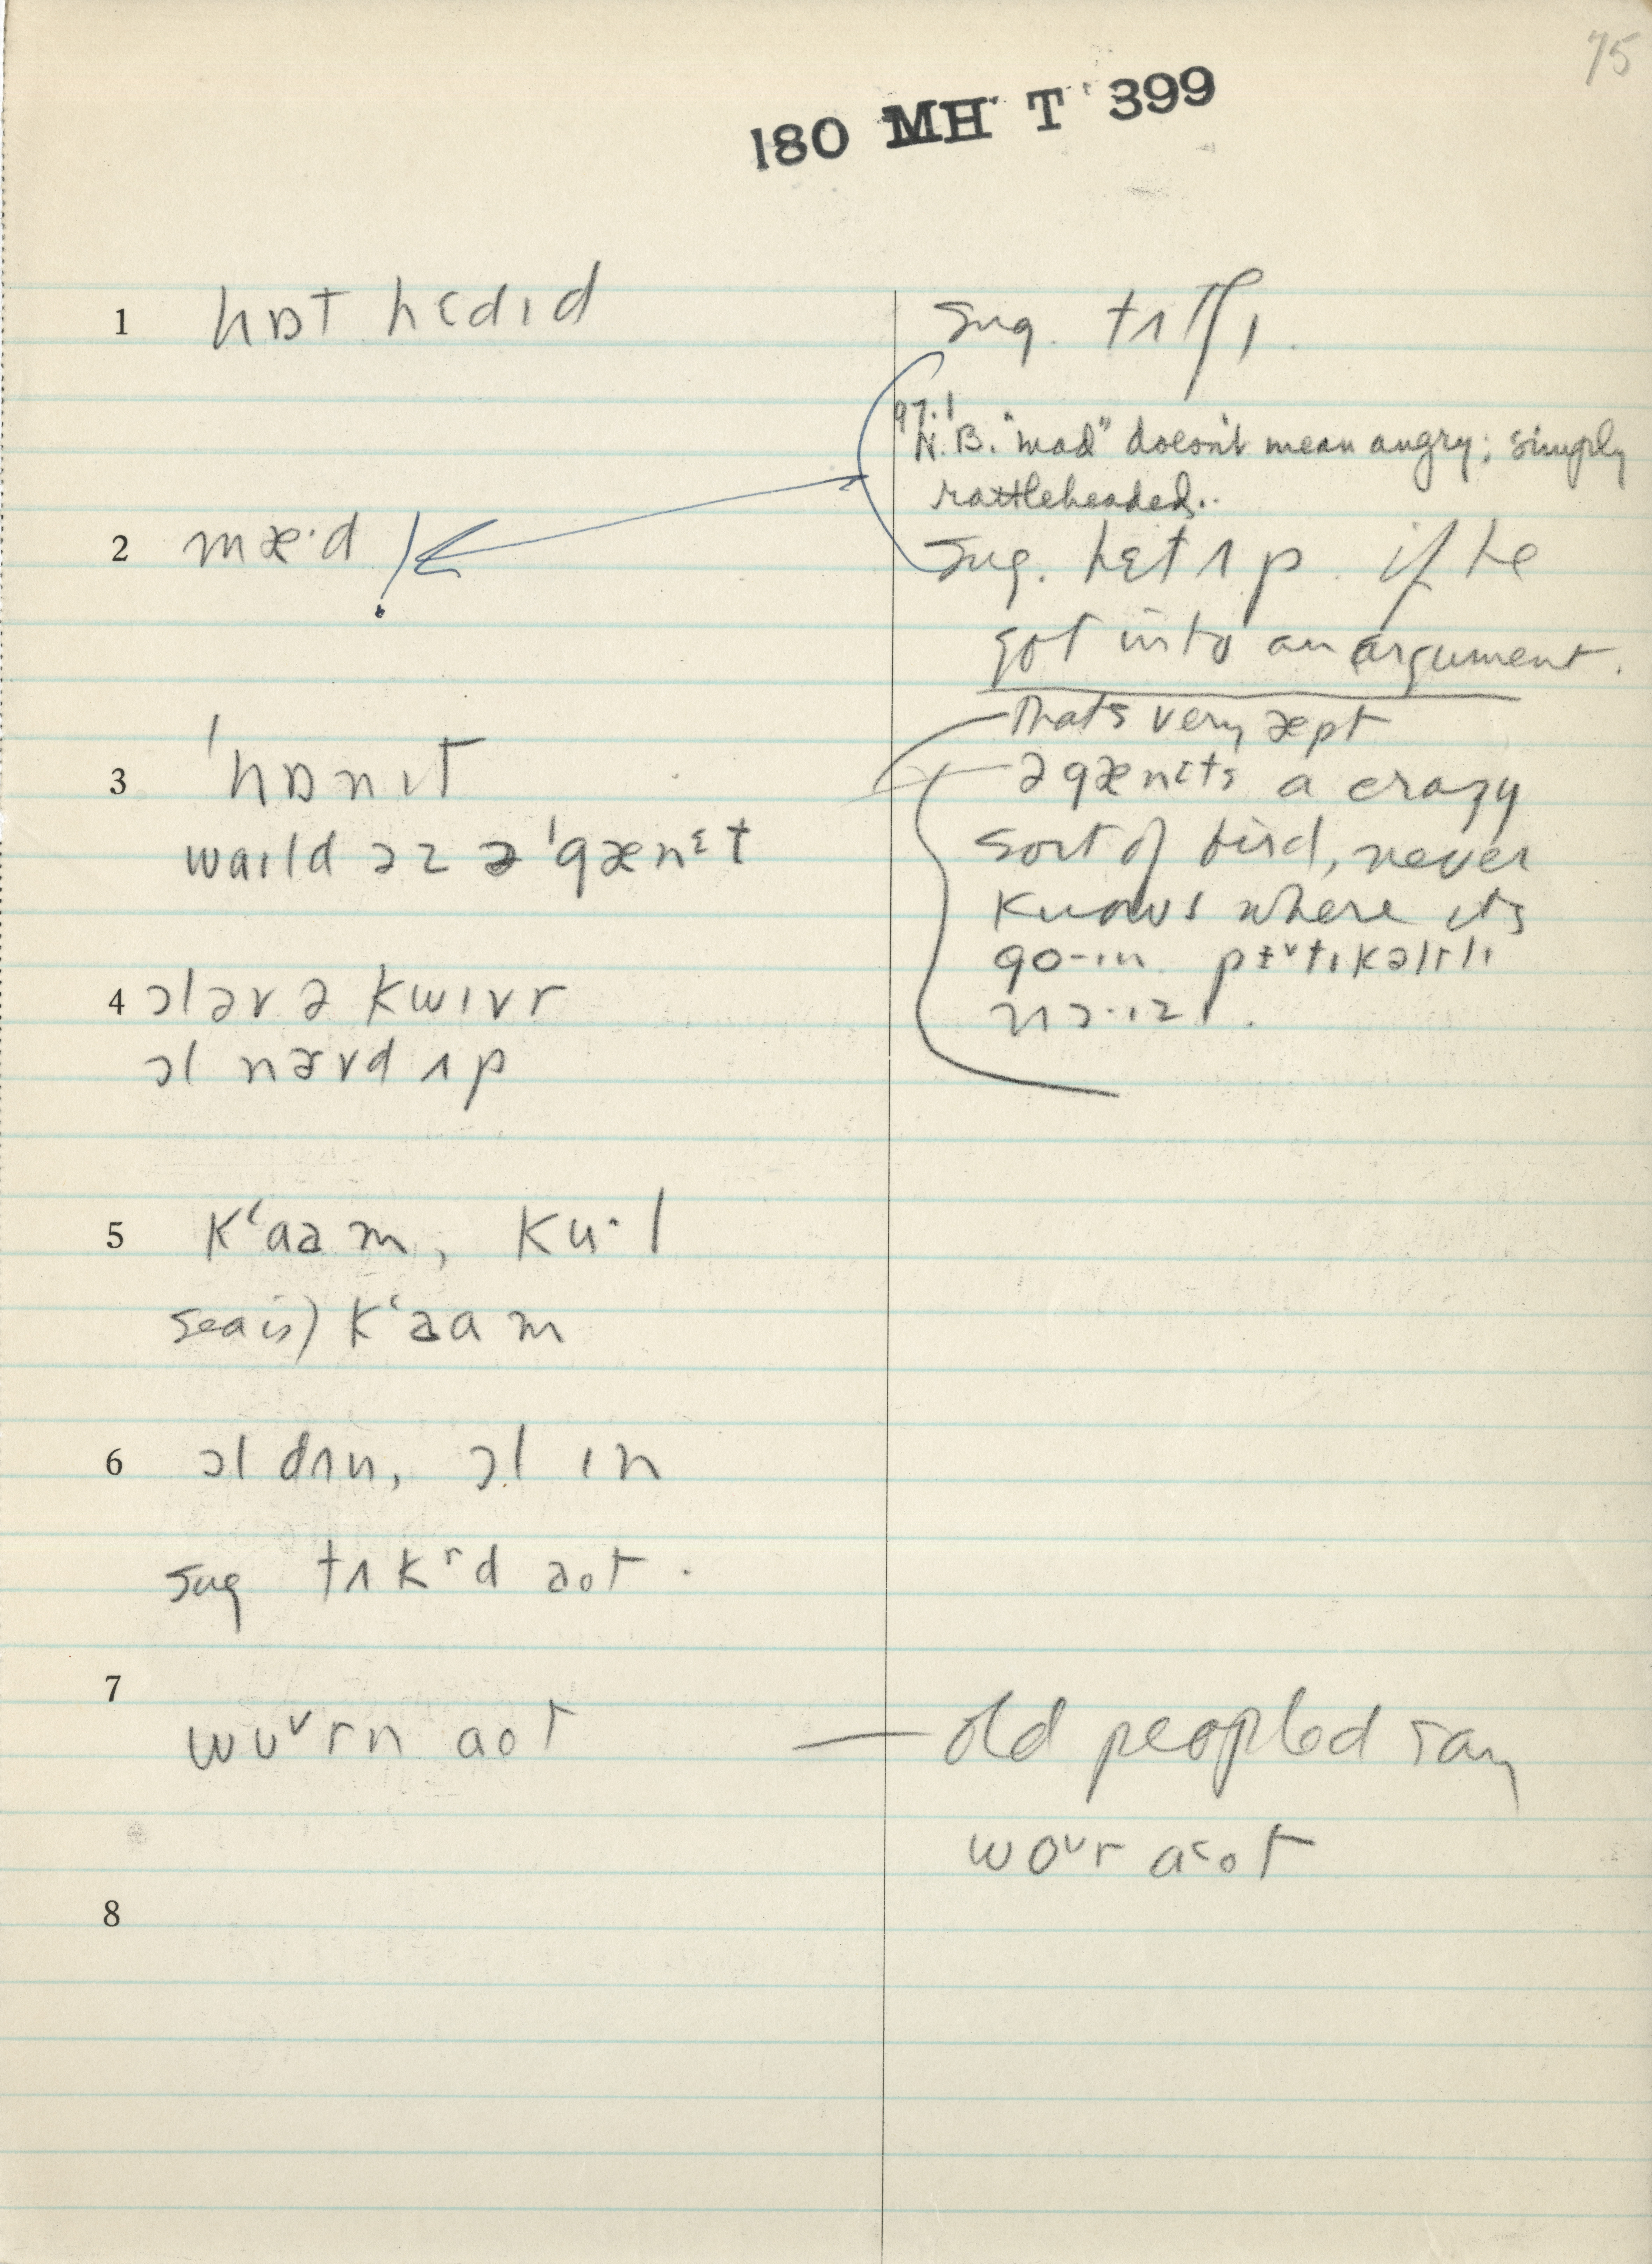 75
180 MH T 399
1 hɒt hɛdɪd
sug. tʌtʃɪ.
97.1
N.B. "mad" doesn't mean angry; simply
rattleheaded..
2 mæ·d
sug. hɛt ʌp. if he
got into an argument.
3 'hɒnɪt
waɪld əz ə 'gænɛt
That's very æpt
ə gænɛts a crazy
sort of bird, never
knows where its
go-ɪn
4 ɔl əv ə kwɪvr
ɔl nərvd ʌp
5 k‘aəm, ku·l
sea is) k‘aam
6 ɔl dʌn, ɔl ɪn
sug tʌkʳd aot.
7 wʋᵛrn aot
— old peopled say
woᵛr a˂ot
8